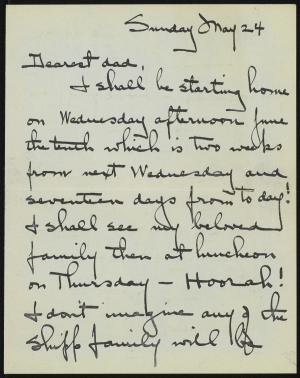 Sunday May 24
Dearest dad,
I shall be starting home
on Wednesday afternoon June
the tenth which is two weeks
from next Wednesday and
seventeen days from to day!
I shall see my beloved
family then at luncheon
on Thursday – Hoorah!
I don't imagine any of the
Shipp family will be